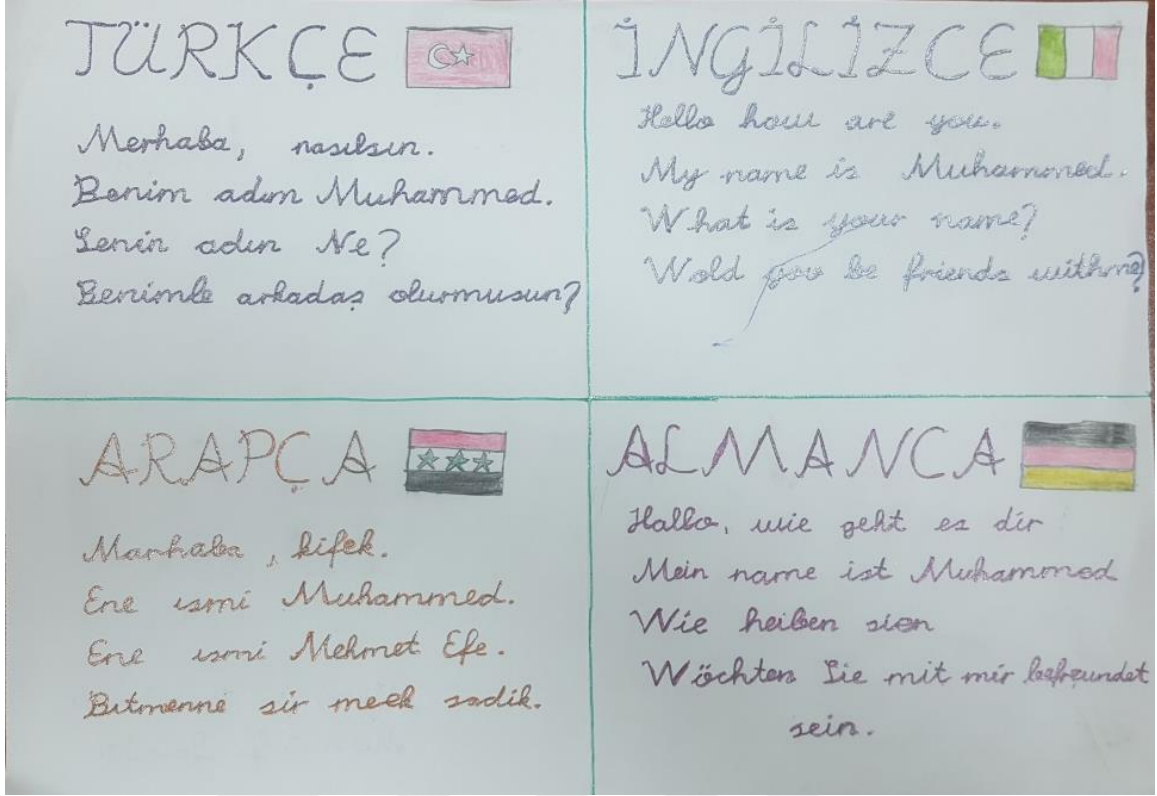 TÜRKÇE
Merhaba, nasılsın.
Benim adım Muhammed.
Senin adın Ne?
Benimle arkadaş olurmusun?
İNGİLİZCE
Hello how are you.
My name is Muhammed.
What is your name?
Wold you be friends withme?
ARAPÇA
Marhaba, kifek.
Ene ısmi Muhammed.
Ene ısmi Mehmet Efe.
Bıtmenne sir meek sadik.
ALMANCA
Hallo, wie geht es dir
Mein name ist Muhammed
Wie heiben sien
Wöchten Sie mit mir befreundet
sein.